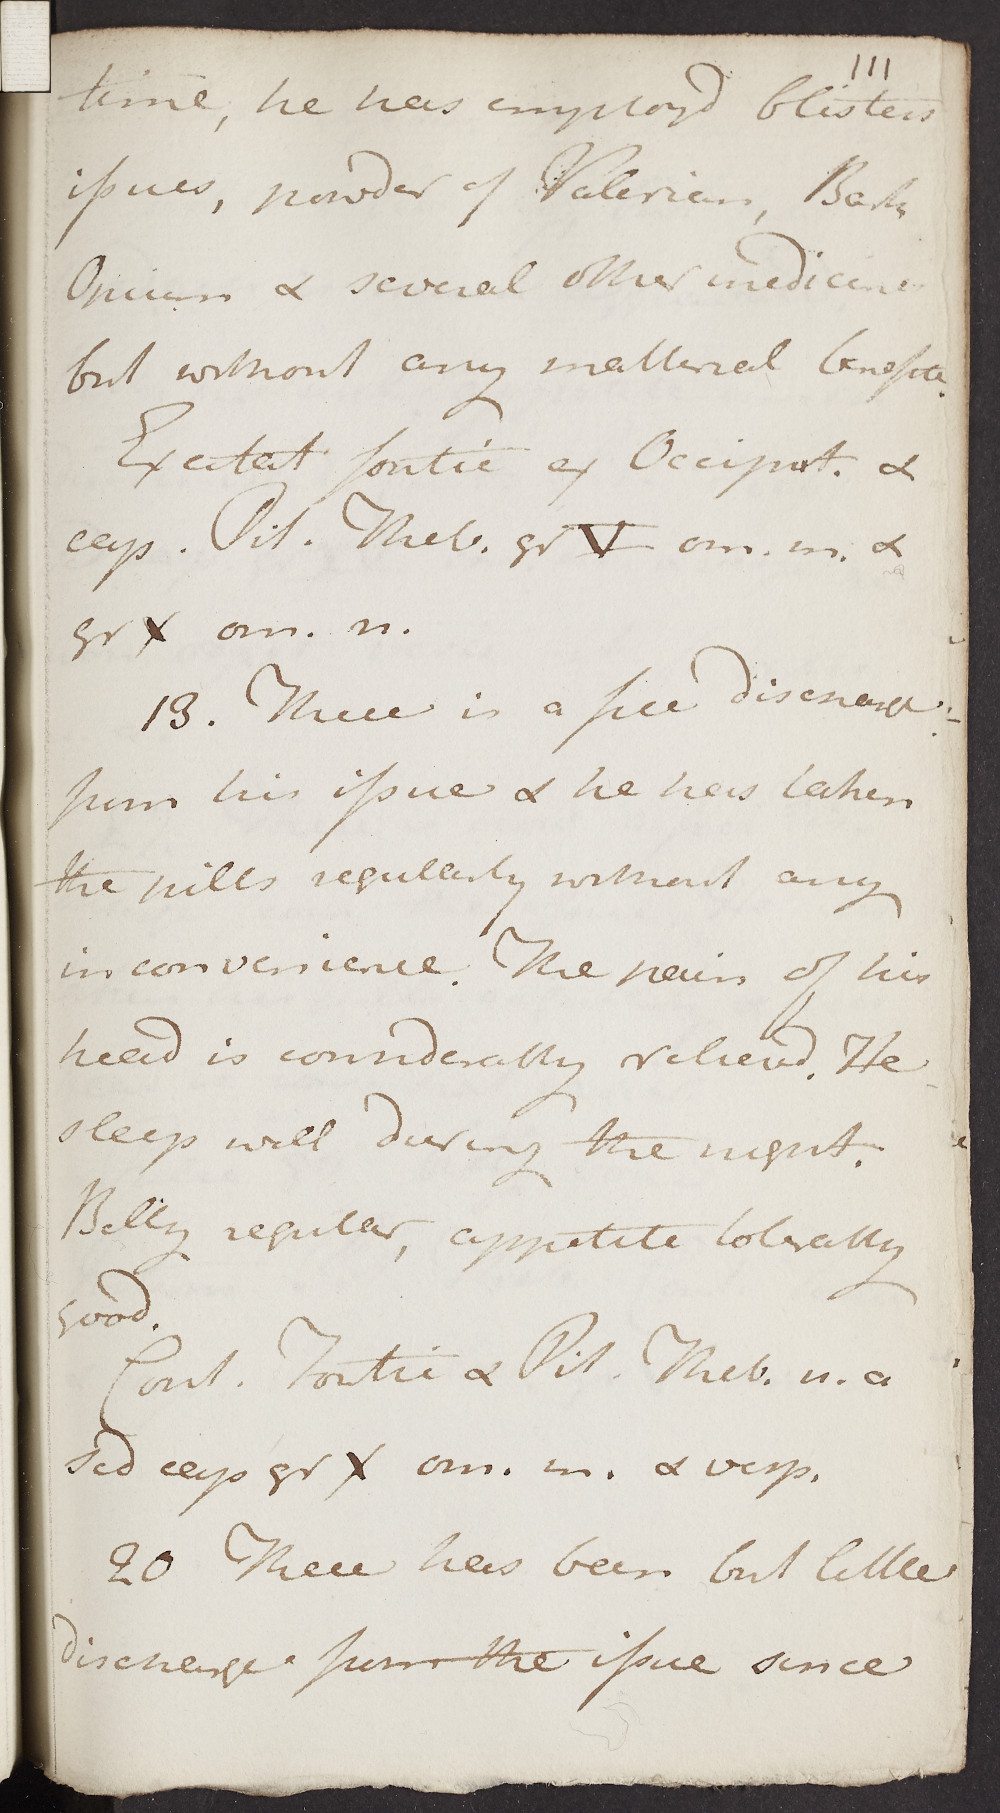 111
time, he has employd blisters
issues, powder of Valerian, Bark
Opium & several other medicine
but without any matterial benefite.
Excitat fontic ex Occiput. &
cap. Pil. Theb. gr V om. m. &
gr X om. n.
13. There is a free discharge
from his issue & he has taken
the pills regullarly without any
inconvenience. The pain of his
head is considerably relievd. He
sleep well during the night.
Belly regular, appetite tolerably
good.
Cont. Fontic & Pil. Theb. u. a
sed cap gr X om. m. & vesp.
20 There has been but little
discharge from the issue since